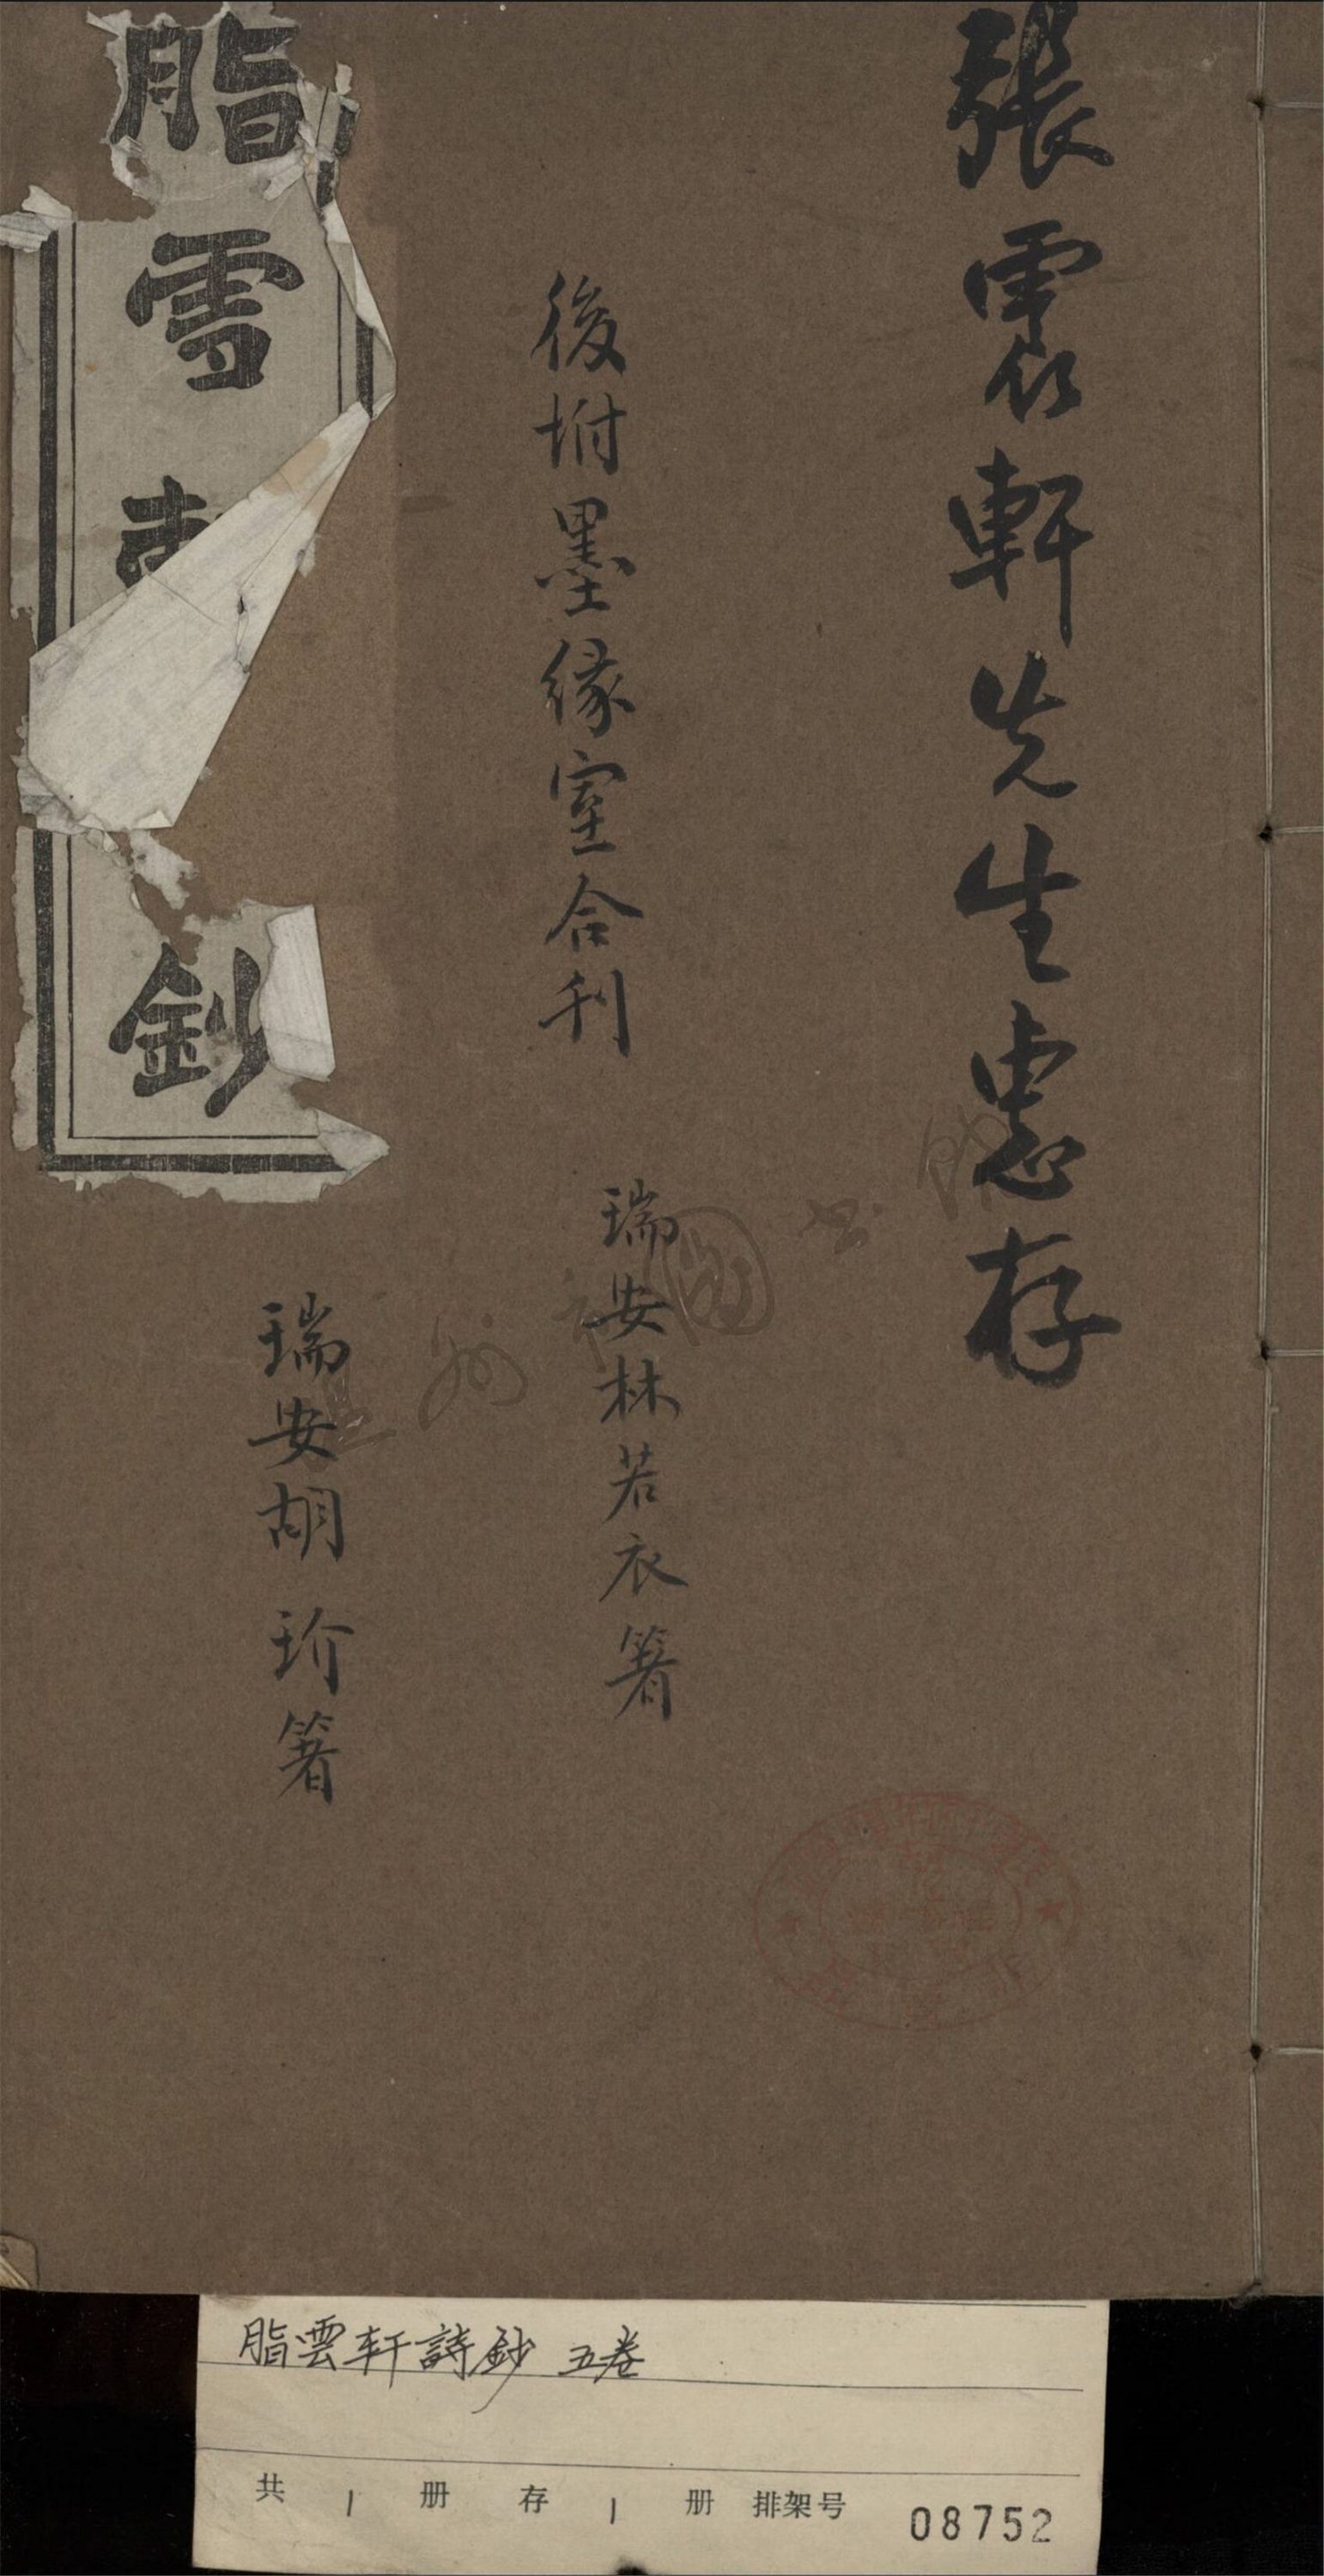 張震軒先生惠存
後坿墨緣室合刊
瑞安林若衣箸
脂雪
鈔
瑞安胡玠箸
脂雲軒詩鈔 五卷
共 1 册 存 1 册 排架号 08752